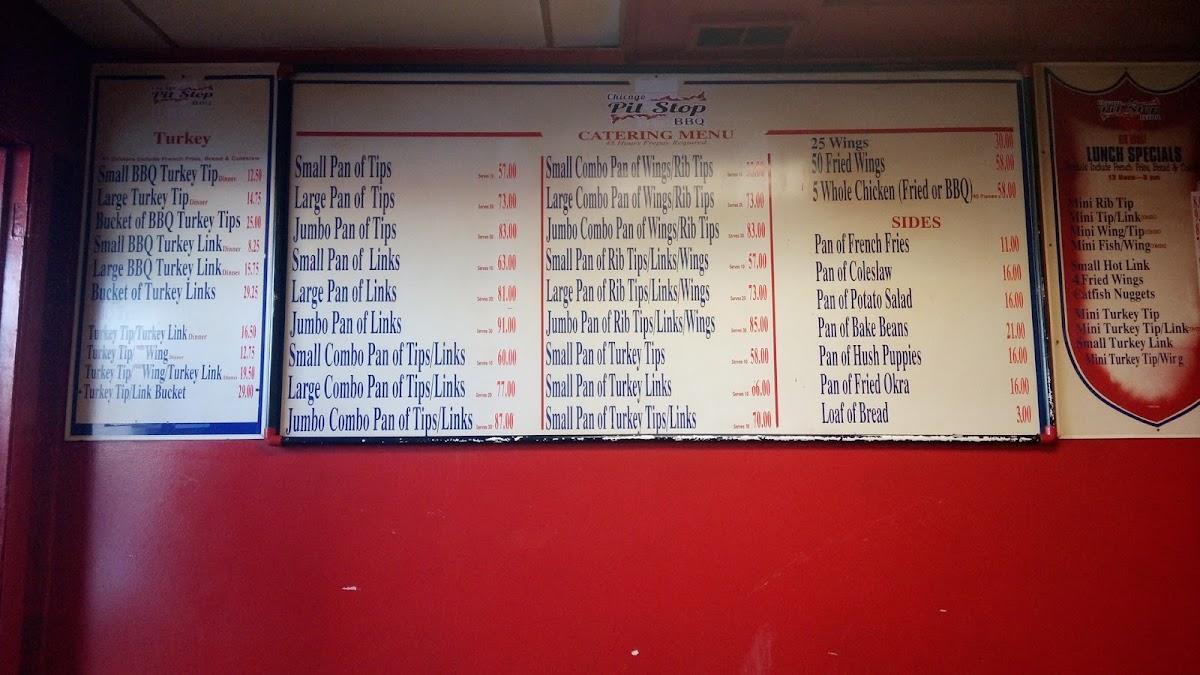 Pit Stop
BBQ
Turkey
All Dinners Include French Fries, Bread & Coleslaw
Small BBQ Turkey Tip Dinner 12.50
Large Turkey Tip Dinner 14.75
Bucket of BBQ Turkey Tips 25.00
Small BBQ Turkey Link Dinner 8.25
Large BBQ Turkey Link Dinner 15.75
Bucket of Turkey Links 29.25
Turkey Tip/Turkey Link Dinner 16.50
Turkey Tip/ Wing Dinner 12.75
Turkey Tip/ Wing/Turkey Link Dinner 19.50
Turkey Tip/Link Bucket 29.00
Chicago
Pit Stop
BBQ
CATERING MENU
Small Pan of Tips Serves 10 57.00
Large Pan of Tips Serves 20 73.00
Jumbo Pan of Tips Serves 30 83.00
Small Pan of Links Serves 10 63.00
Large Pan of Links Serves 20 81.00
Jumbo Pan of Links Serves 30 91.00
Small Combo Pan of Tips/Links Serves 10 60.00
Large Combo Pan of Tips/Links Serves 20 77.00
Jumbo Combo Pan of Tips/Links Serves 30 87.00
Small Combo Pan of Wings/Rib Tips
Large Combo Pan of Wings/Rib Tips Serves 20 73.00
Jumbo Combo Pan of Wings/Rib Tips Serves 30 83.00
Small Pan of Rib Tips/Links/Wings Serves 10 57.00
Large Pan of Rib Tips/Links/Wings Serves 20 73.00
Jumbo Pan of Rib Tips/Links/Wings Serves 30 85.00
Small Pan of Turkey Tips Serves 10 58.00
Small Pan of Turkey Links Serves 10 66.00
Small Pan of Turkey Tips/Links Serves 10 70.00
25 Wings 30.00
50 Fried Wings 58.00
5 Whole Chicken (Fried or BBQ) 58.00
SIDES
Pan of French Fries 11.00
Pan of Coleslaw 16.00
Pan of Potato Salad 16.00
Pan of Bake Beans 21.00
Pan of Hush Puppies 16.00
Pan of Fried Okra 16.00
Loaf of Bread 3.00
Pit Stop
LUNCH SPECIALS
Mini Rib Tip
Mini Tip/Link
Mini Wing/Tip
Mini Fish/Wing
Small Hot Link
4 Fried Wings
Catfish Nuggets
Mini Turkey Tip
Mini Turkey Tip/Link
Small Turkey Link
Mini Turkey Tip/Wing